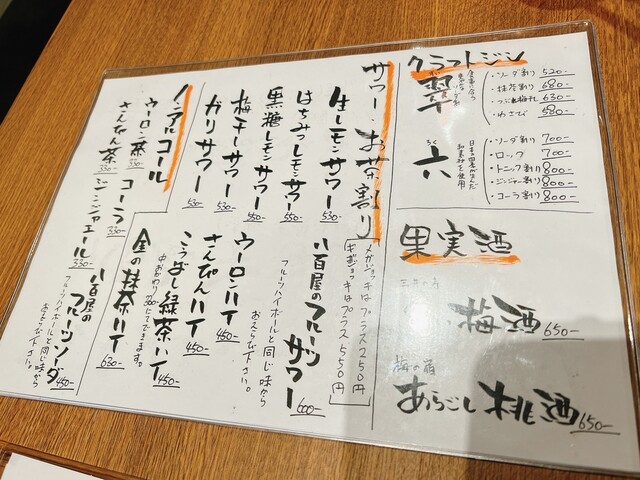 クラフトジン
翠
・ソーダ割り 520-
・抹茶割り 680-
・つぶれ梅割 630-
・わさび 580-
六
ろく
日本の四季が生んだ
和素材を使用
・ソーダ割り 700-
・ロック 700-
・トニック割り 800-
・ジンジャー割り 800-
・コーラ割り 800-
果実酒
梅酒 650-
梅の宿
あらごし桃酒 650-
サワー・お茶割り
メガジョッキはプラス250円
ギガジョッキはプラス550円
生レモンサワー 530-
はちみつレモンサワー 550-
黒糖レモンサワー 550-
梅干しサワー 530-
ガリサワー 530-
八百屋のフルーツサワー 600-
フルーツハイボールと同じ味から
おえらび下さい。
ウーロンハイ 450-
さんぴんハイ 450-
こうばし緑茶ハイ 450-
金の抹茶ハイ 630-
ノンアルコール
ウーロン茶 330-
さんぴん茶 330-
コーラ 330-
ジンジャエール 330-
八百屋の
フルーツソーダ 450-
フルーツハイボールと同じ味から
おえらび下さい。